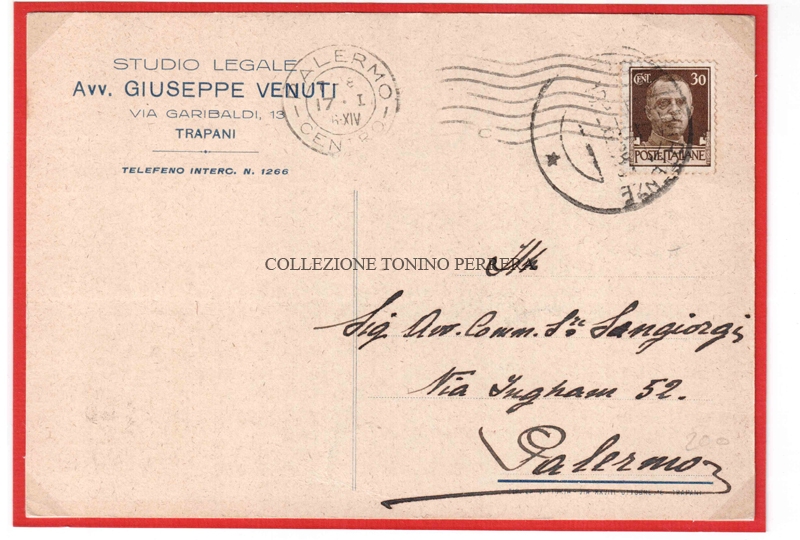 STUDIO LEGALE
Avv. GIUSEPPE VENUTI
VIA GARIBALDI, 13
TRAPANI
TELEFENO INTERC. N. 1266
PALERMO
17 - I
XIV
CENTRO
CENT. 30
POSTE ITALIANE
COLLEZIONE TONINO PERRERA
Sig. Avv. Comm. Sangiorgi
Via Ingham 52.
Palermo
200
TRAPANI